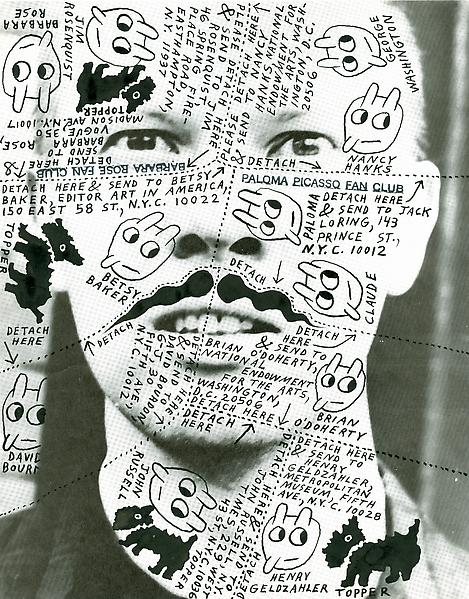 BARBARA
ROSE
JIM
ROSENQUIST
TOPPER
DETACH HERE
& SEND TO
BARBARA ROSE,
VOGUE, 350
MADISON AVE, N.Y.C. 10017
PLEASE DETACH HERE
& SEND TO JIM
ROSENQUIST
46 SPRING FIRE-
PLACE ROAD
EASTHAMPTON,
N.Y. 11937
PLEASE DETACH HERE
& SEND TO NANCY
HANKS, NATIONAL
ENDOWMENT FOR
THE ARTS, WASH-
INGTON, D.C.
20506
GEORGE
WASHINGTON
NANCY
HANKS
DETACH
BARBARA ROSE FAN CLUB
PALOMA PICASSO FAN CLUB
DETACH HERE & SEND TO BETSY
BAKER, EDITOR ART IN AMERICA,
150 EAST 58 ST., N.Y.C. 10022
DETACH HERE
& SEND TO JACK
LORING, 143
PRINCE ST.,
N.Y.C. 10012
PALOMA
CLAUDE
TOPPER
BETSY
BAKER
DETACH
DETACH
DETACH
HERE
DETACH HERE
& SEND TO
BRIAN O'DOHERTY,
NATIONAL
ENDOWMENT
FOR THE ARTS,
WASHINGTON,
D.C. 20506
BRIAN
O'DOHERTY
DETACH HERE
& SEND TO
DAVID BOURDON
FIFTH AVE,
N.Y.C. 10012
DETACH HERE
DETACH
HERE
DAVID
BOUR
DETACH HERE
& SEND TO
HENRY
GELDZAHLER,
METROPOLITAN
MUSEUM, FIFTH
AVE, N.Y.C. 10028
JOHN
RUSSELL
DETACH
HERE & SEND TO
JOHN RUSSELL
229 WEST
43 ST., N.Y.C. 10036
TOPPER
HENRY
GELDZAHLER
TOPPER